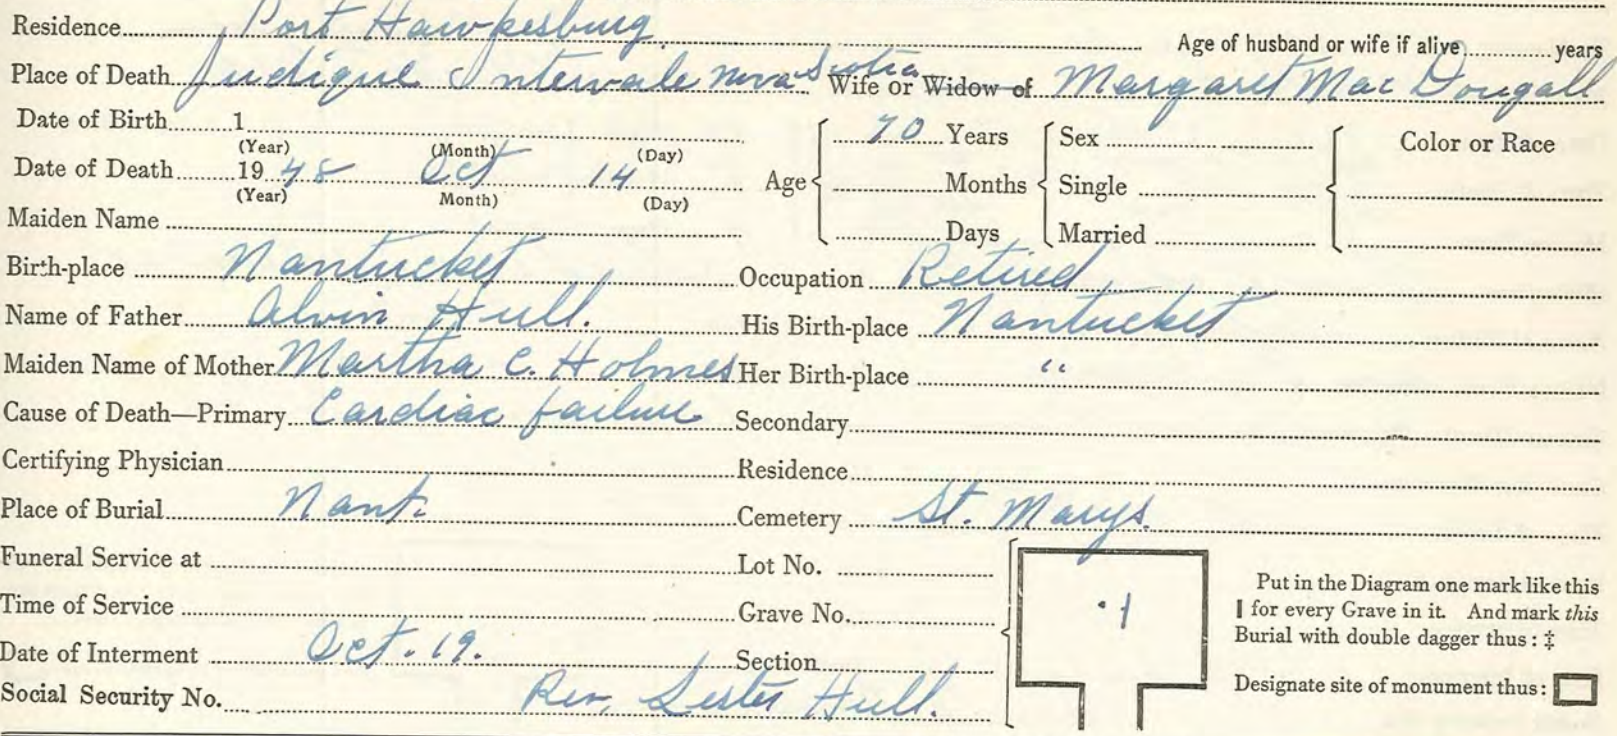 Residence Port Hawkesburg Age of husband or wife if alive years
Place of Death Judique Intervale Nova Scotia Wife or Widow of Margaret Mac Dougall
Date of Birth 1 Age 70 Years Sex Color or Race
(Year) (Month) (Day)
Date of Death 1948 Oct 14 Months Single
(Year) Month) (Day)
Maiden Name Days Married
Birth-place Nantucket Occupation Retired
Name of Father Alvin Hull. His Birth-place Nantucket
Maiden Name of Mother Martha C. Holmes Her Birth-place "
Cause of Death—Primary Cardiac failure Secondary
Certifying Physician Residence
Place of Burial Nant. Cemetery St. Marys.
Funeral Service at Lot No.
Time of Service Grave No.
Date of Interment Oct. 19. Section
Social Security No. Rev. Lester Hull.
Put in the Diagram one mark like this
| for every Grave in it. And mark this
Burial with double dagger thus: ‡
Designate site of monument thus: